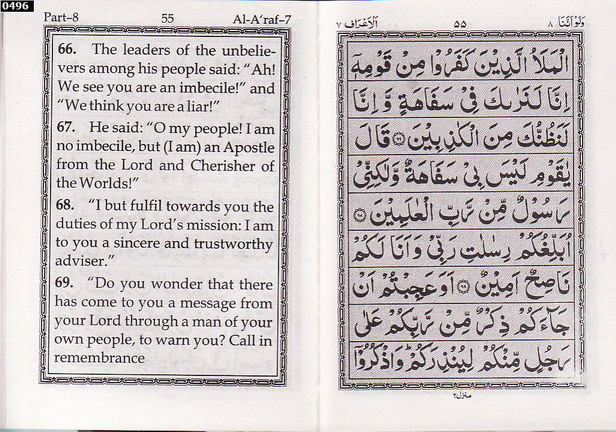 0496
Part–8 55 Al-A'raf–7
66. The leaders of the unbelie-
vers among his people said: “Ah!
We see you are an imbecile!” and
“We think you are a liar!”
67. He said: “O my people! I am
no imbecile, but (I am) an Apostle
from the Lord and Cherisher of
the Worlds!”
68. “I but fulfil towards you the
duties of my Lord's mission: I am
to you a sincere and trustworthy
adviser.”
69. “Do you wonder that there
has come to you a message from
your Lord through a man of your
own people, to warn you? Call in
remembrance
وَلَوْ اَنَّنَا ٨ ٥٥ اَلْاَعْرَاف ٧
الْمَلَاُ الَّذِيْنَ كَفَرُوْا مِنْ قَوْمِهٖۤ
اِنَّا لَنَرٰىكَ فِيْ سَفَاهَةٍ وَّ اِنَّا
لَنَظُنُّكَ مِنَ الْكٰذِبِيْنَ ۝٦٦ قَالَ
يٰقَوْمِ لَيْسَ بِيْ سَفَاهَةٌ وَّلٰكِنِّيْ
رَسُوْلٌ مِّنْ رَّبِّ الْعٰلَمِيْنَ ۝٦٧
اُبَلِّغُكُمْ رِسٰلٰتِ رَبِّيْ وَاَنَا لَكُمْ
نَاصِحٌ اَمِيْنٌ ۝٦٨ اَوَعَجِبْتُمْ اَنْ
جَآءَكُمْ ذِكْرٌ مِّنْ رَّبِّكُمْ عَلٰى
رَجُلٍ مِّنْكُمْ لِيُنْذِرَكُمْ ؕ وَاذْكُرُوْۤا
منزل ٢